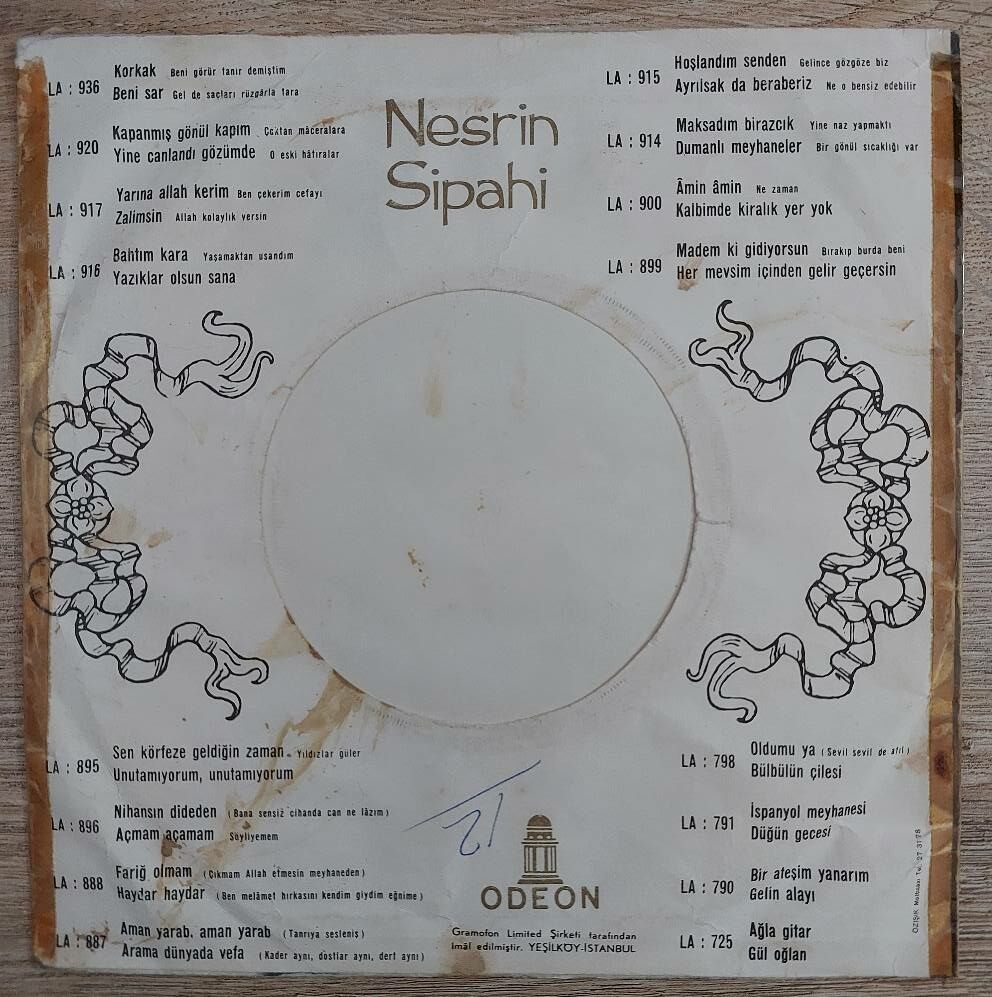 LA : 936
Korkak Beni görür tanır demiştim
Beni sar Gel de saçları rüzgârla tara
LA : 920
Kapanmış gönül kapım Çoktan mâceralara
Yine canlandı gözümde O eski hâtıralar
LA : 917
Yarına allah kerim Ben çekerim cefayı
Zalimsin Allah kolaylık versin
LA : 916
Bahtım kara Yaşamaktan usandım
Yazıklar olsun sana
Nesrin
Sipahi
LA : 915
Hoşlandım senden Gelince gözgöze biz
Ayrılsak da beraberiz Ne o bensiz edebilir
LA : 914
Maksadım birazcık Yine naz yapmaktı
Dumanlı meyhaneler Bir gönül sıcaklığı var
LA : 900
Âmin âmin Ne zaman
Kalbimde kiralık yer yok
LA : 899
Madem ki gidiyorsun Bırakıp burda beni
Her mevsim içinden gelir geçersin
LA : 895
Sen körfeze geldiğin zaman Yıldızlar güler
Unutamıyorum, unutamıyorum
LA : 896
Nihansın dideden (Bana sensiz cihanda can ne lâzım)
Açmam açamam Söyliyemem
LA : 888
Fariğ olmam (Çıkmam Allah etmesin meyhaneden)
Haydar haydar (Ben melâmet hırkasını kendim giydim eğnime)
LA : 887
Aman yarab. aman yarab (Tanrıya sesleniş)
Arama dünyada vefa (Kader aynı, dostlar aynı, dert aynı)
12
ODEON
Gramofon Limited Şirketi tarafından
İmâl edilmiştir. YEŞİLKÖY-İSTANBUL
LA : 798
Oldumu ya (Sevil sevil de atıl)
Bülbülün çilesi
LA : 791
İspanyol meyhanesi
Düğün gecesi
LA : 790
Bir ateşim yanarım
Gelin alayı
LA : 725
Ağla gitar
Gül oğlan
ÖZIŞIK Matbaası Tel. 27 31 78